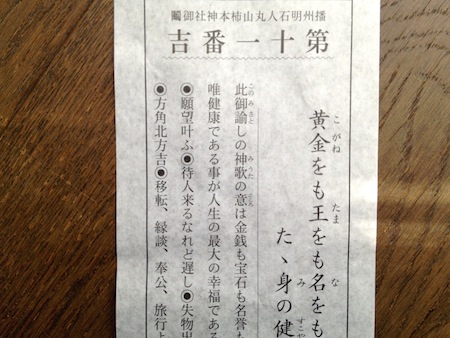 播州明石人丸山柿本神社御鬮
第十一番吉
黄金をも王をも名をも
たゝ身の健
此御諭しの神歌の意は金銭も宝石も名誉も
唯健康である事が人生の最大の幸福である
◉願望叶ふ◉待人来るなれど遅し◉失物出
◉方角北方吉◉移転、縁談、奉公、旅行よ